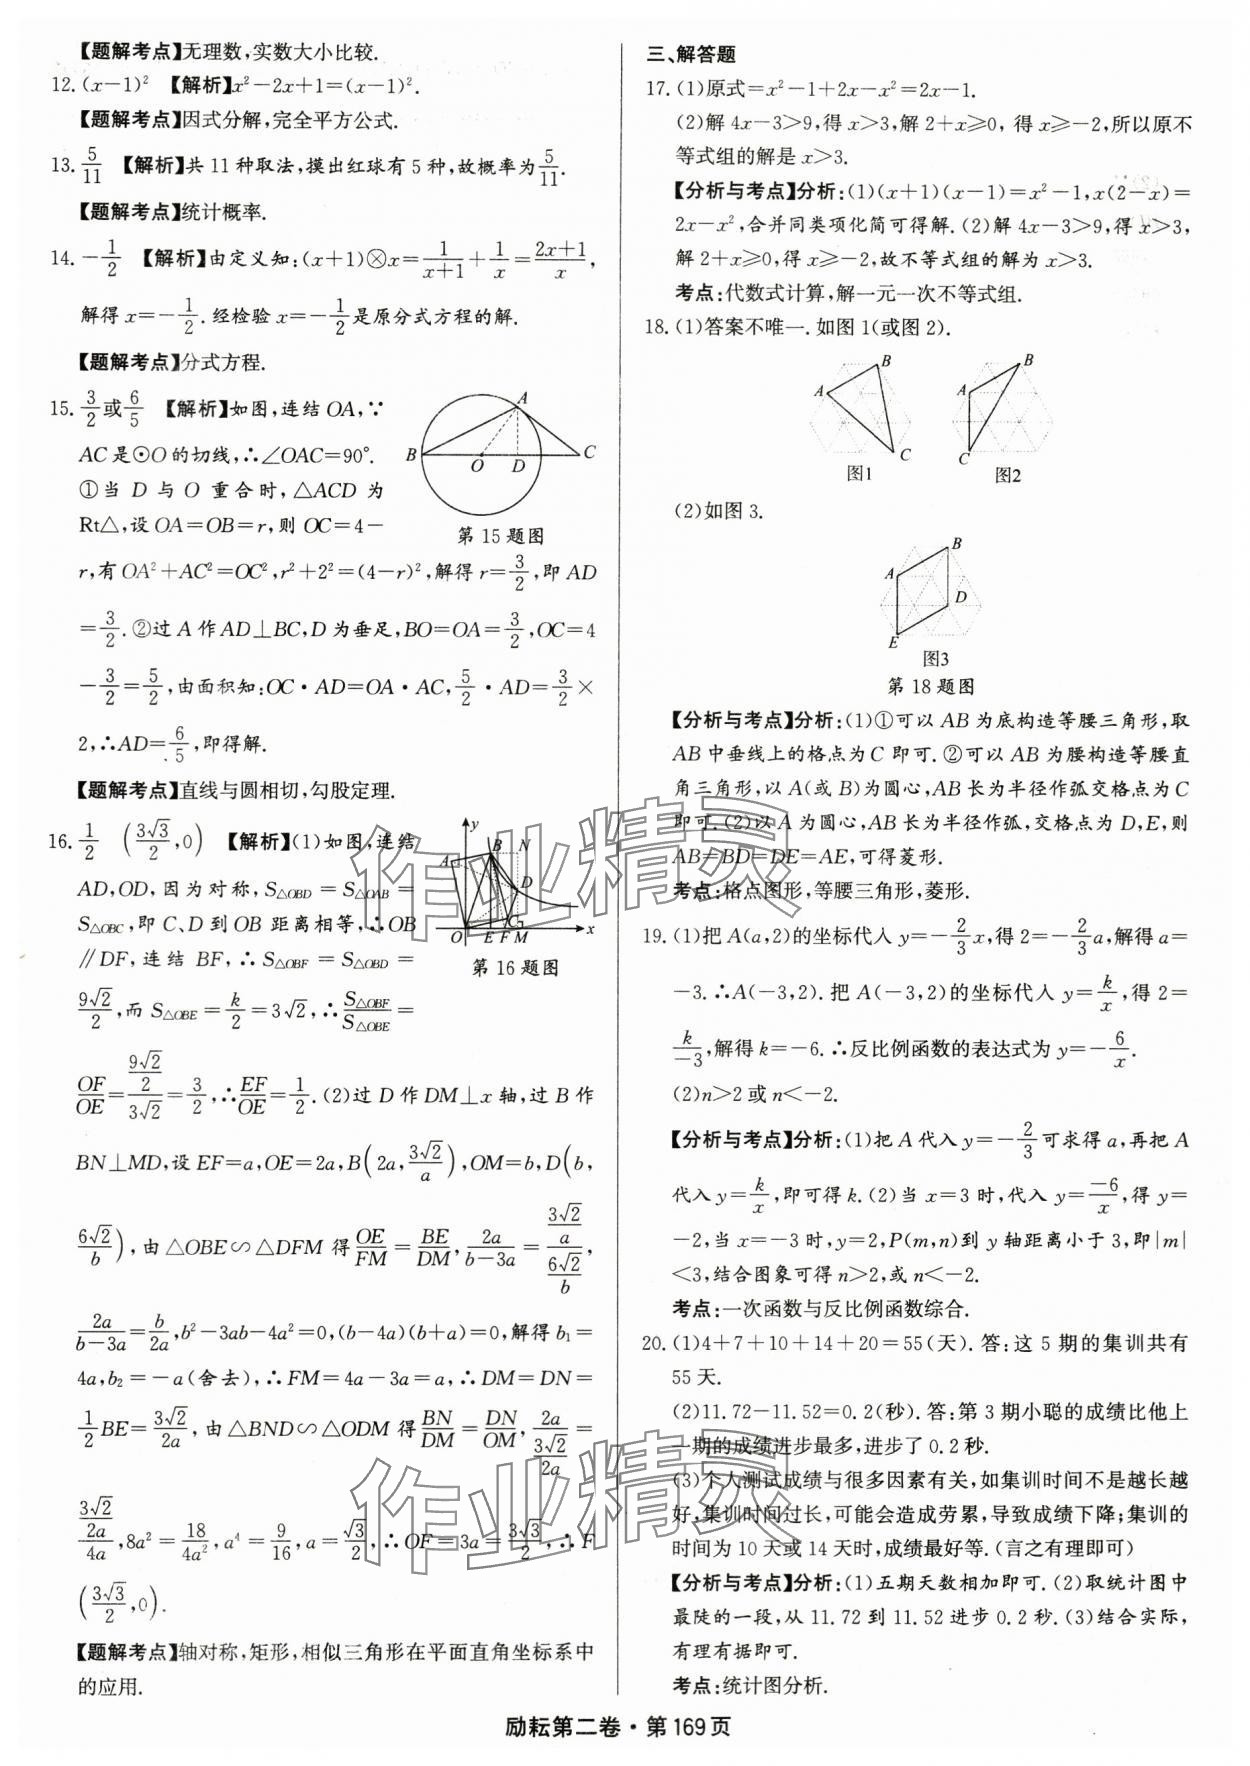 【题解考点】无理数,实数大小比较.
12. (x-1)² 【解析】x²-2x+1=(x-1)².
【题解考点】因式分解,完全平方公式.
13. 5/11 【解析】共 11 种取法,摸出红球有 5 种,故概率为 5/11.
【题解考点】统计概率.
14. -1/2 【解析】由定义知:(x+1)⊗x=1/(x+1)+1/x=(2x+1)/x,
解得 x=-1/2.经检验 x=-1/2是原分式方程的解.
【题解考点】分式方程.
15. 3/2或6/5 【解析】如图,连结 OA,∵
AC 是⊙O 的切线,∴∠OAC=90°.
①当 D 与 O 重合时,△ACD 为
Rt△,设 OA=OB=r,则 OC=4-
A
B
O
D
C
第 15 题图
r,有 OA²+AC²=OC²,r²+2²=(4-r)²,解得 r=3/2,即 AD
=3/2.②过 A 作 AD⊥BC,D 为垂足,BO=OA=3/2,OC=4
-3/2=5/2,由面积知:OC·AD=OA·AC,5/2·AD=3/2×
2,∴AD=6/5,即得解.
【题解考点】直线与圆相切,勾股定理.
16. 1/2 (3√3/2,0) 【解析】(1)如图,连结
AD,OD,因为对称,S△OBD=S△OAB=
S△OBC,即 C、D 到 OB 距离相等,∴OB
∥DF,连结 BF,∴S△OBF=S△OBD=
y
A
B
N
D
C
O
E F M
x
第 16 题图
9√2/2,而 S△OBE=k/2=3√2,∴S△OBF/S△OBE=
OF/OE=(9√2/2)/(3√2)=3/2,∴EF/OE=1/2.(2)过 D 作 DM⊥x 轴,过 B 作
BN⊥MD,设 EF=a,OE=2a,B(2a,3√2/a),OM=b,D(b,
6√2/b),由△OBE∽△DFM 得OE/FM=BE/DM,2a/(b-3a)=(3√2/a)/(6√2/b),
2a/(b-3a)=b/2a,b²-3ab-4a²=0,(b-4a)(b+a)=0,解得 b₁=
4a,b₂=-a(舍去),∴FM=4a-3a=a,∴DM=DN=
1/2BE=3√2/2a,由△BND∽△ODM 得BN/DM=DN/OM,2a/(3√2/2a)=
(3√2/2a)/4a,8a²=18/4a²,a⁴=9/16,a=√3/2,∴OF=3a=3√3/2,∴F
(3√3/2,0).
【题解考点】轴对称,矩形,相似三角形在平面直角坐标系中
的应用.
三、解答题
17. (1)原式=x²-1+2x-x²=2x-1.
(2)解 4x-3>9,得 x>3,解 2+x≥0,得 x≥-2,所以原不
等式组的解是 x>3.
【分析与考点】分析:(1)(x+1)(x-1)=x²-1,x(2-x)=
2x-x²,合并同类项化简可得解.(2)解 4x-3>9,得 x>3,
解 2+x≥0,得 x≥-2,故不等式组的解为 x>3.
考点:代数式计算,解一元一次不等式组.
18. (1)答案不唯一.如图 1(或图 2).
A
B
C
图1
A
B
C
图2
(2)如图 3.
A
B
D
E
图3
第 18 题图
【分析与考点】分析:(1)①可以 AB 为底构造等腰三角形,取
AB 中垂线上的格点为 C 即可.②可以 AB 为腰构造等腰直
角三角形,以 A(或 B)为圆心,AB 长为半径作弧交格点为 C
即可.(2)以 A 为圆心,AB 长为半径作弧,交格点为 D,E,则
AB=BD=DE=AE,可得菱形.
考点:格点图形,等腰三角形,菱形.
19. (1)把 A(a,2)的坐标代入 y=-2/3x,得 2=-2/3a,解得 a=
-3.∴A(-3,2).把 A(-3,2)的坐标代入 y=k/x,得 2=
k/-3,解得 k=-6.∴反比例函数的表达式为 y=-6/x.
(2)n>2 或 n<-2.
【分析与考点】分析:(1)把 A 代入 y=-2/3可求得 a,再把 A
代入 y=k/x,即可得 k.(2)当 x=3 时,代入 y=-6/x,得 y=
-2,当 x=-3 时,y=2,P(m,n)到 y 轴距离小于 3,即|m|
<3,结合图象可得 n>2,或 n<-2.
考点:一次函数与反比例函数综合.
20. (1)4+7+10+14+20=55(天).答:这 5 期的集训共有
55 天.
(2)11.72-11.52=0.2(秒).答:第 3 期小聪的成绩比他上
一期的成绩进步最多,进步了 0.2 秒.
(3)个人测试成绩与很多因素有关,如集训时间不是越长越
好,集训时间过长,可能会造成劳累,导致成绩下降;集训的
时间为 10 天或 14 天时,成绩最好等.(言之有理即可)
【分析与考点】分析:(1)五期天数相加即可.(2)取统计图中
最陡的一段,从 11.72 到 11.52 进步 0.2 秒.(3)结合实际,
有理有据即可.
考点:统计图分析.
作业精灵
作业精灵
励耘第二卷·第169页